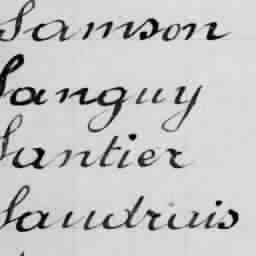 Samson
Sanguy
Santier
Saudrais